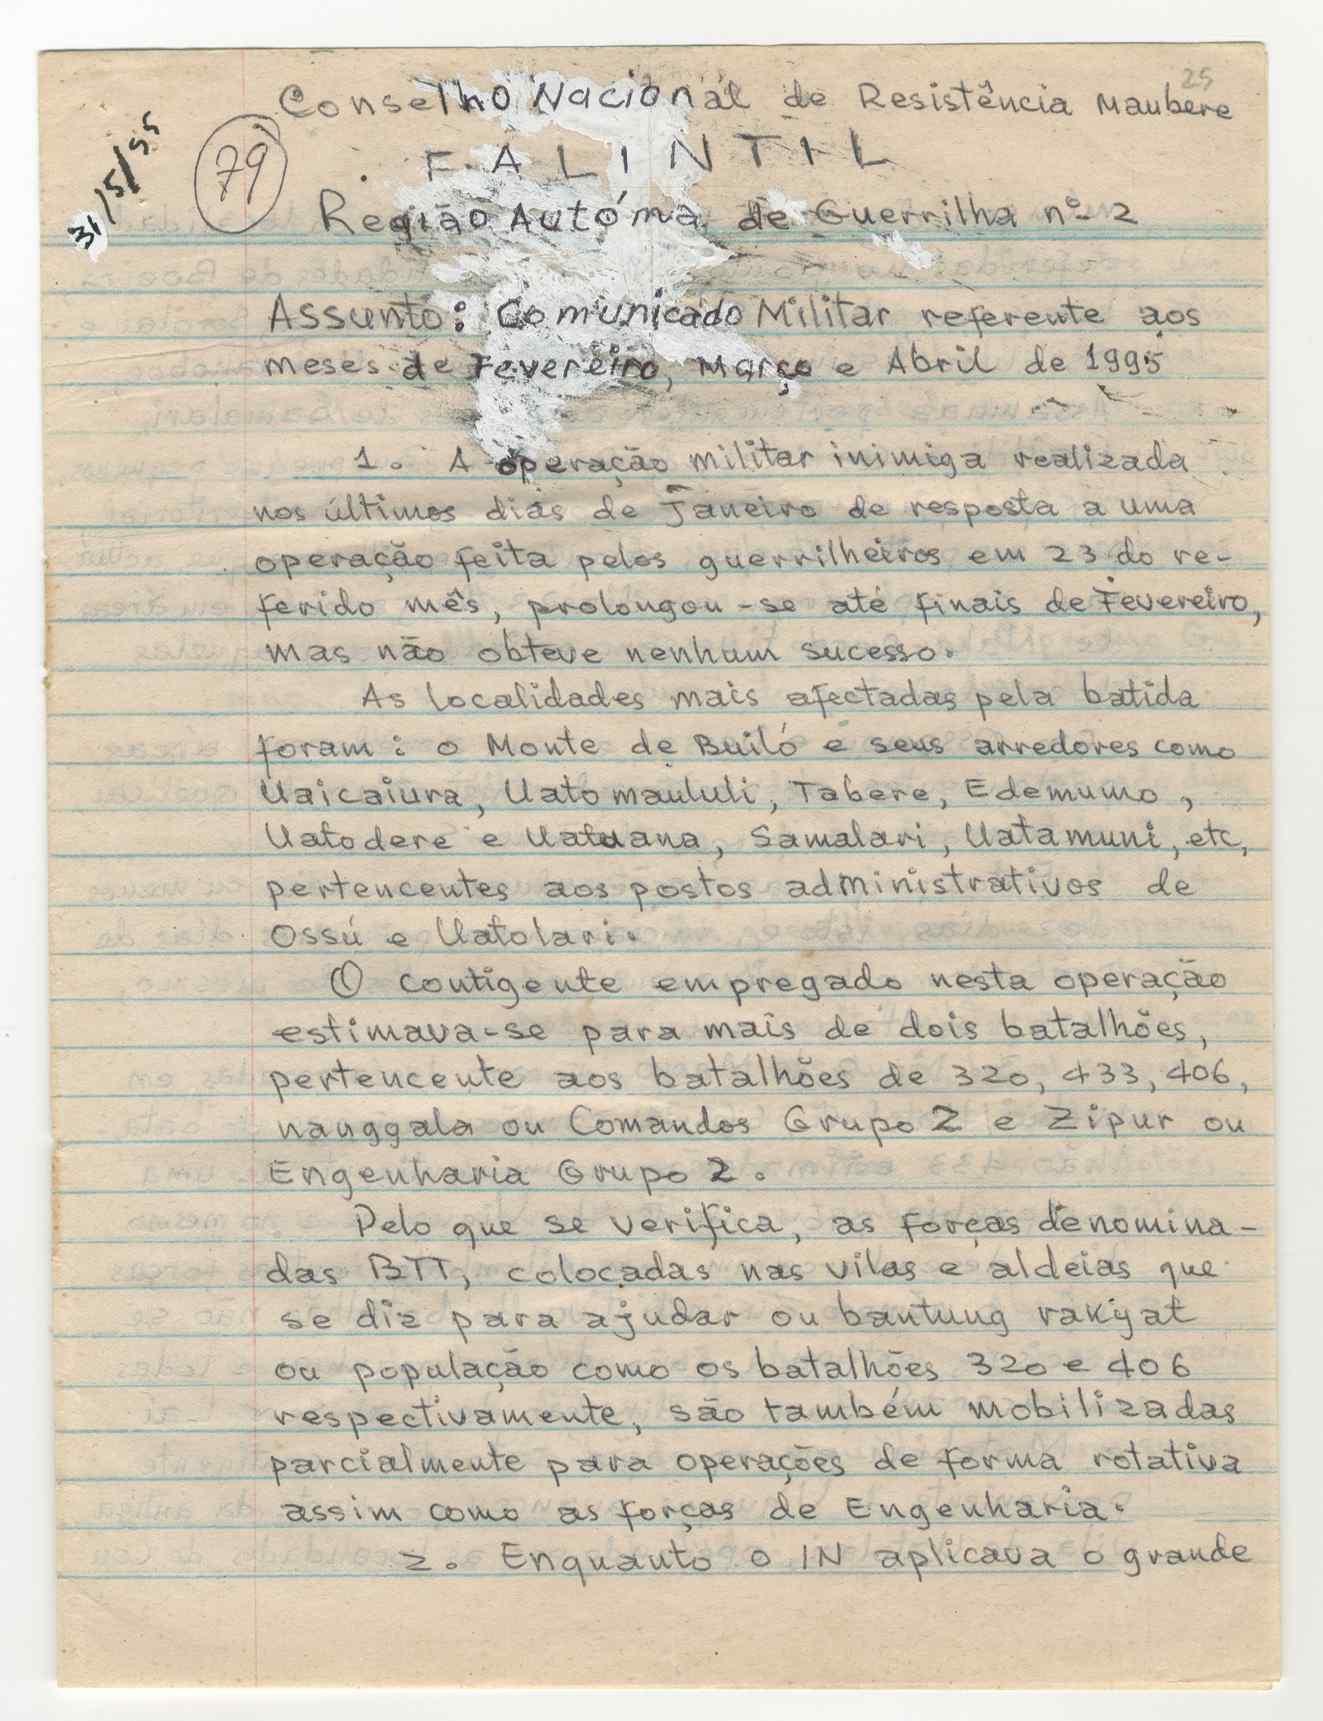 25
Conselho Nacional de Resistência Maubere
31/5/95
79
FALINTIL
Região Autóma de Guerrilha nº 2
Assunto: Comunicado Militar referente aos
meses de Fevereiro, Março e Abril de 1995
1. A operação militar inimiga realizada
nos últimos dias de Janeiro de resposta a uma
operação feita pelos guerrilheiros em 23 do re-
ferido mês, prolongou-se até finais de Fevereiro,
mas não obteve nenhum sucesso.
As localidades mais afectadas pela batida
foram: o Monte de Builó e seus arredores como
Uaicaiura, Uato maululi, Tabere, Edemumo,
Uatodere e Uatuana, Samalari, Uatamuni, etc,
pertencentes aos postos administrativos de
Ossú e Uatolari.
O contigente empregado nesta operação
estimava-se para mais de dois batalhões,
pertencente aos batalhões de 320, 433, 406,
nanggala ou Comandos Grupo 2 e Zipur ou
Engenharia Grupo 2.
Pelo que se verifica, as forças denomina-
das BTT, colocadas nas vilas e aldeias que
se diz para ajudar ou bantung rakyat
ou população como os batalhões 320 e 406
respectivamente, são também mobilizadas
parcialmente para operações de forma rotativa
assim como as forças de Engenharia.
2. Enquanto o IN aplicava o grande